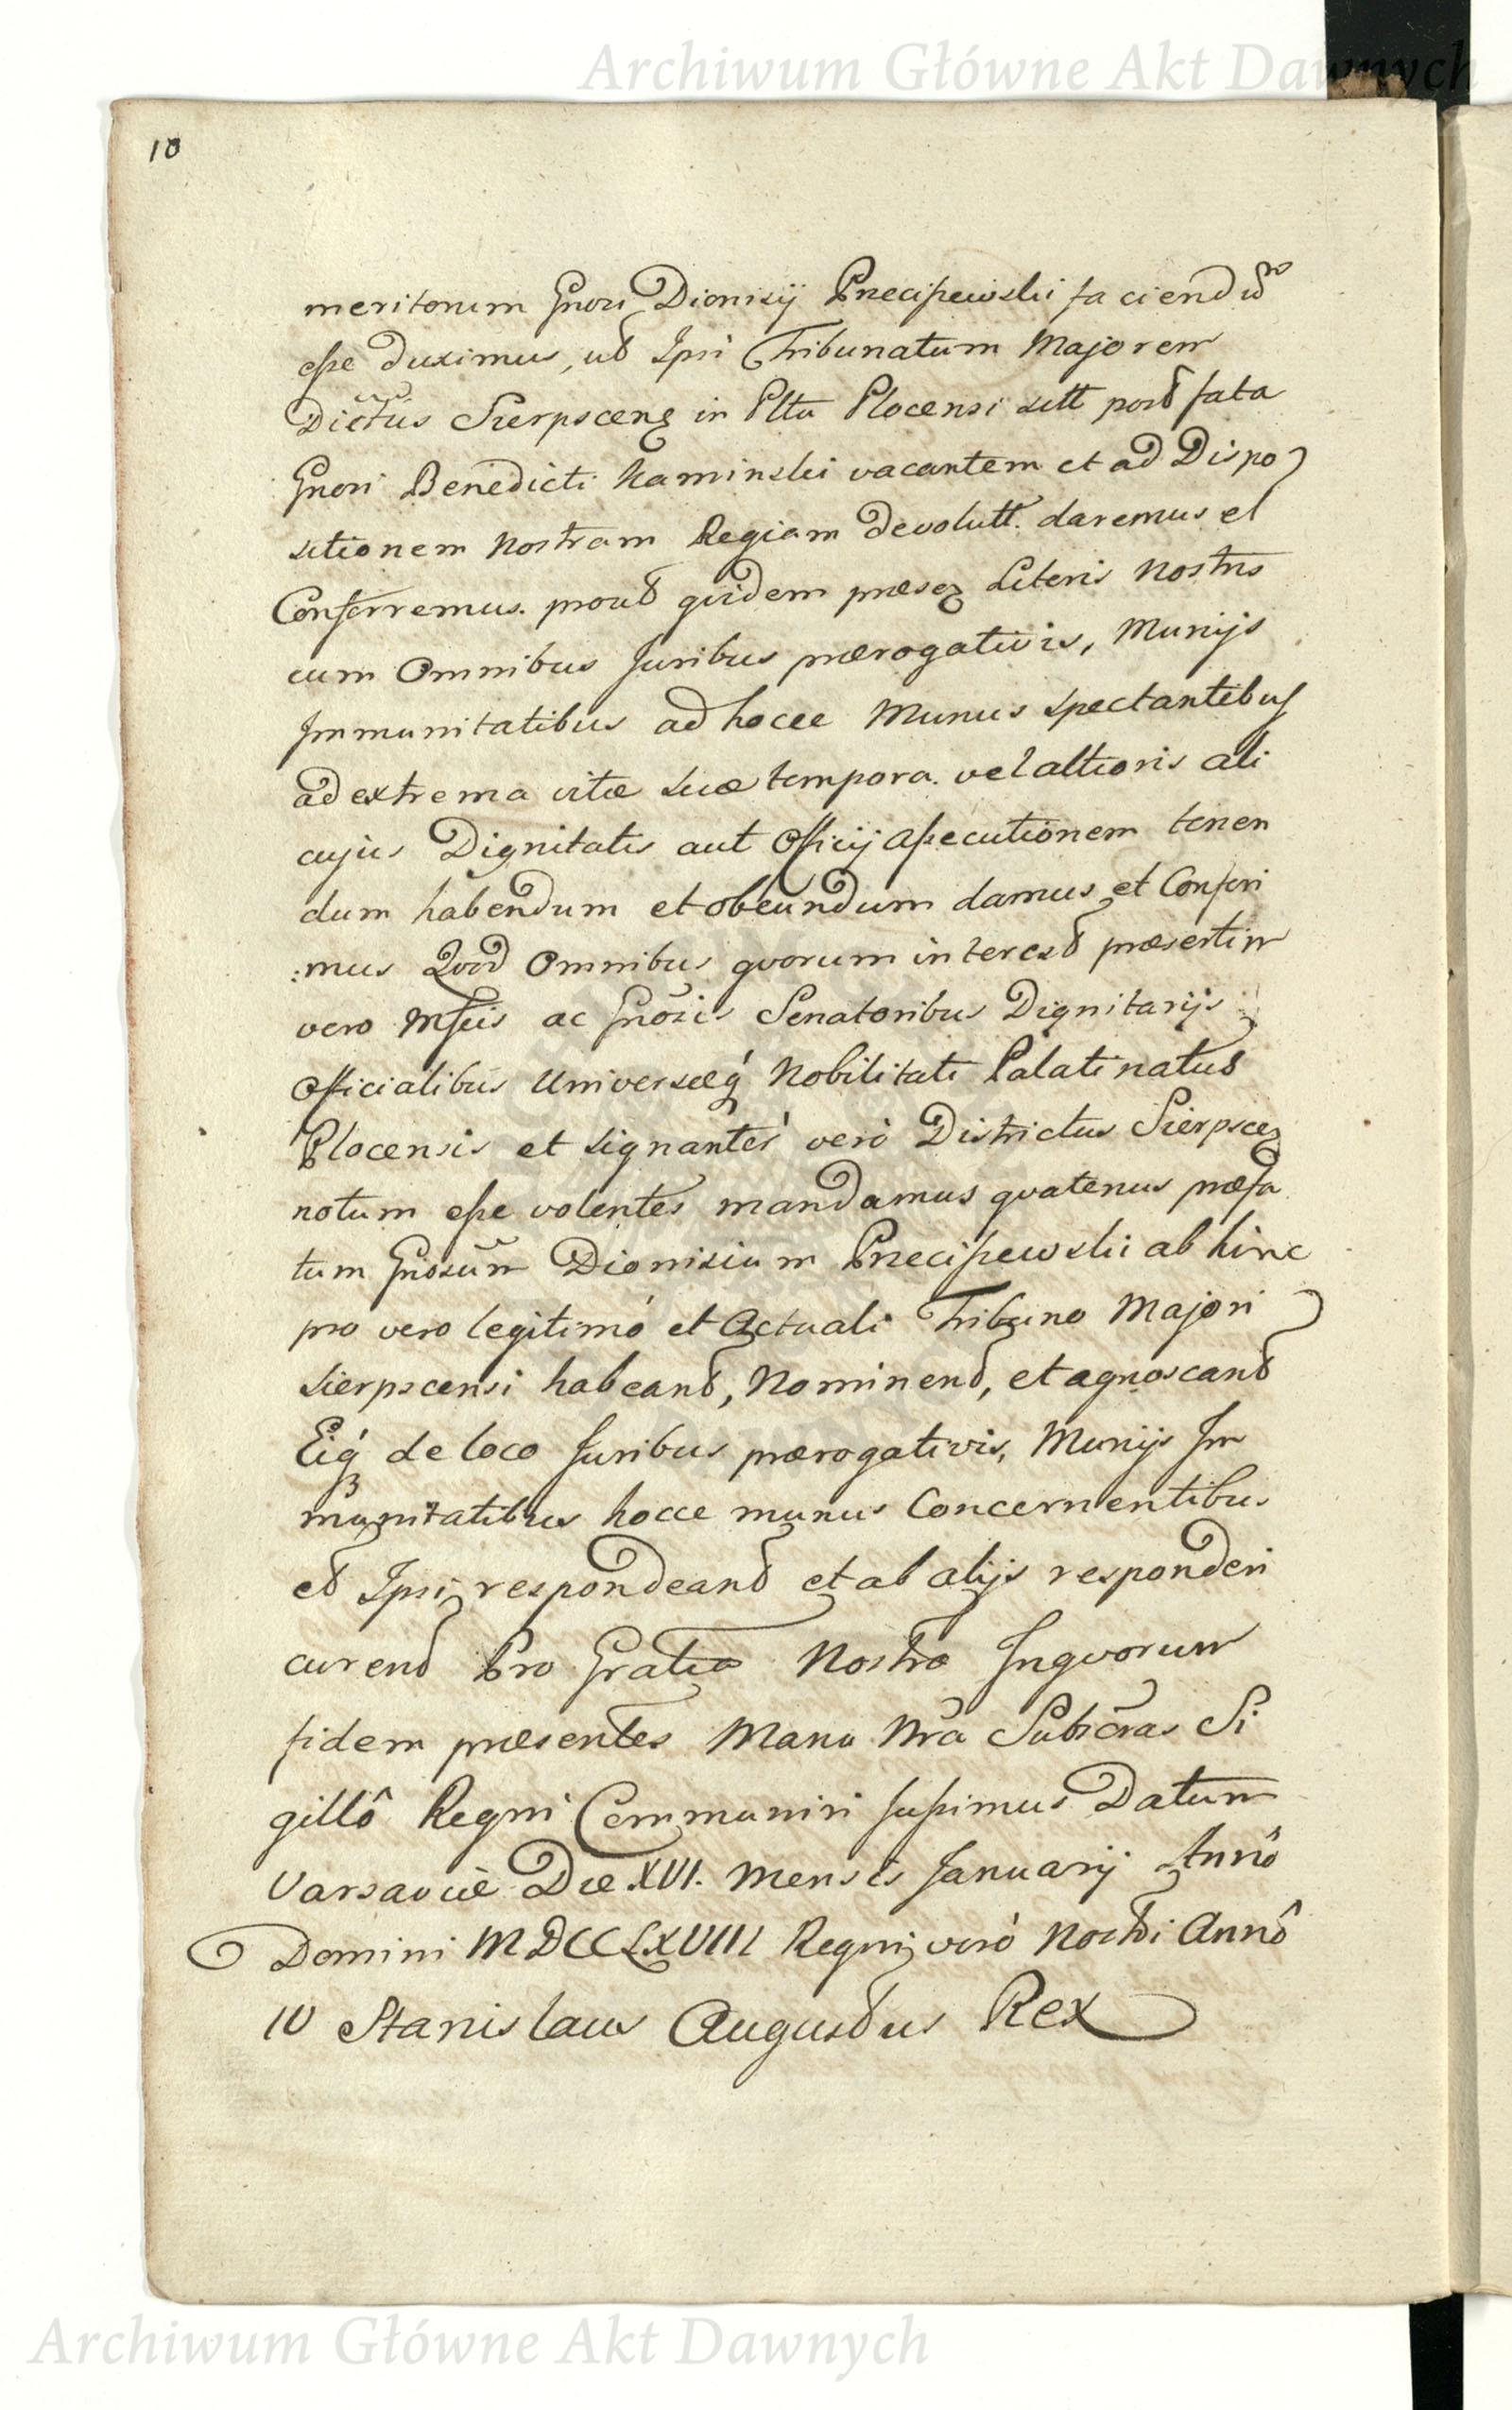 Archiwum Główne Akt Dawnych
10
meritorum Gnosi Dionisij Przecipewski faciendū
esse duximus, ut Ipsi Tribunatum Majorem
Dictūs Sierpscenq in Pltu Plocensi sitt post fata
Gnosi Benedicti Kaminski vacantem et ad Dispo
sitionem Nostram Regiam devolutt. daremus et
Conferremus. prout quidem præseq Literis Nostris
cum Omnibus Juribus prærogativis, Munijs
Immunitatibus ad hocce Munus spectantibus
ad extrema vitæ suæ tempora. vel altioris ali
cujus Dignitatis aut Officij assecutionem tenen
dum habendum et obeundum damus et Conferi
:mus Quod Omnibus quorum interest præsertim
vero Mfcis ac Gnōsis Senatoribus Dignitarijs
Officialibus Universæq́ Nobilitati Palatinatus
Plocensis et signantér verò Districtus Sierpsceq
notum esse volentes mandamus quatenus præfa
tum Gnosūm Dionisium Przecipewski ab hinc
pro vero legitimó et Actuali Tribuno Majori
Sierpscensi habeant, Nominent, et agnoscant
Eiq́ de loco Juribus prærogativis, Munijs Im
munitatibus hocce munus Concernentibus
et Ipsi respondeant et ab alijs responderi
curent Pro Gratia Nostra Inquorum
fidem præsentes Manu Nrā Subscras Si
gillô Regni Communiri jussimus Datum
Varsaviæ Die XVI. Mensis Januarij Annô
Domini MDCCLXVIII Regni verò Nostri Annô
IV Stanislaus Augustus Rex
Archiwum Główne Akt Dawnych